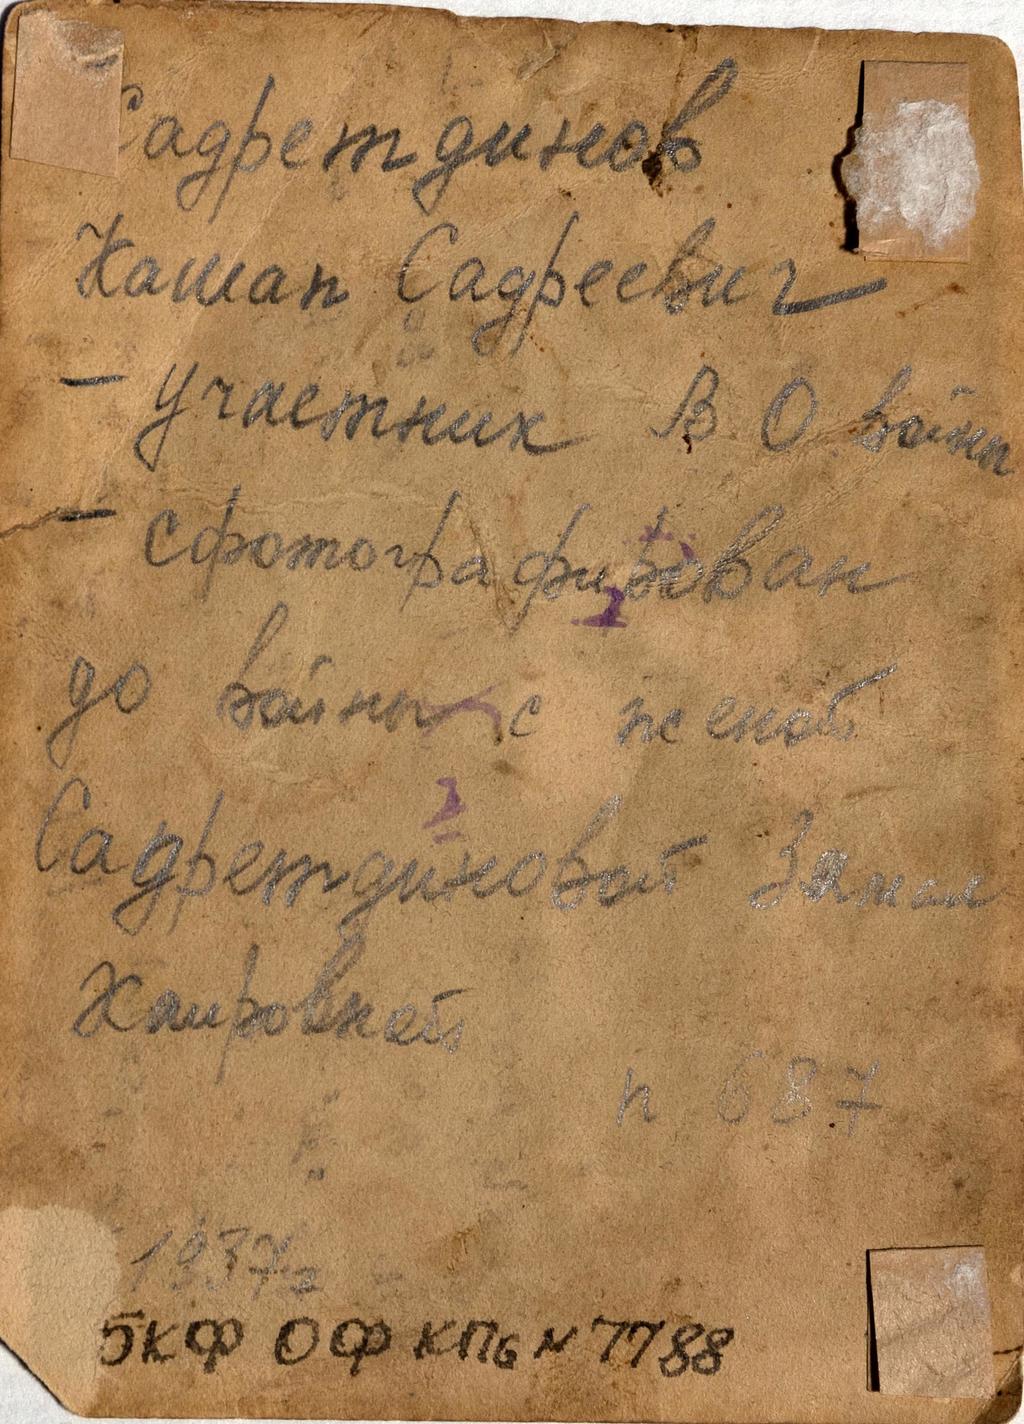 Садретдинов
Кашап Садреевич
– участник В О войны
– сфотографирован
до войны с женой
Садретдиновой Замал
Хаировной
п 687
1937г
БКФ ОФ КПб № 7788